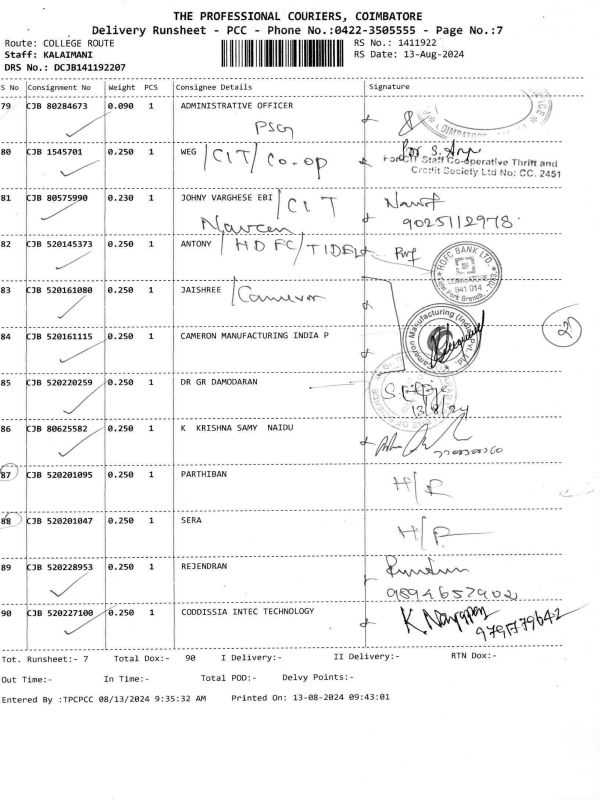 THE PROFESSIONAL COURIERS, COIMBATORE
Delivery Runsheet - PCC - Phone No.:0422-3505555 - Page No.:7
Route: COLLEGE ROUTE RS No.: 1411922
Staff: KALAIMANI RS Date: 13-Aug-2024
DRS No.: DCJB141192207
S No Consignment No Weight PCS Consignee Details Signature
79 CJB 80284673 0.090 1 ADMINISTRATIVE OFFICER
PSG
80 CJB 1545701 0.250 1 WEG /CIT/Co-op
For CIT Staff Co-operative Thrift and
Credit Society Ltd No: CC. 2451
81 CJB 80575990 0.230 1 JOHNY VARGHESE EBI /CIT
Naveen 9025112978
82 CJB 520145373 0.250 1 ANTONY /HDFC/TIDEL
HDFC BANK LTD.
COIMBATORE
641 014
83 CJB 520161080 0.250 1 JAISHREE /Cameron
84 CJB 520161115 0.250 1 CAMERON MANUFACTURING INDIA P
Cameron Manufacturing (India) Pvt. Ltd.
2
85 CJB 520220259 0.250 1 DR GR DAMODARAN
13/8/24
86 CJB 80625582 0.250 1 K KRISHNA SAMY NAIDU
87 CJB 520201095 0.250 1 PARTHIBAN
88 CJB 520201047 0.250 1 SERA
89 CJB 520228953 0.250 1 REJENDRAN
9894657902
90 CJB 520227100 0.250 1 CODDISSIA INTEC TECHNOLOGY
Tot. Runsheet:- 7 Total Dox:- 90 I Delivery:- II Delivery:- RTN Dox:-
Out Time:- In Time:- Total POD:- Delvy Points:-
Entered By :TPCPCC 08/13/2024 9:35:32 AM Printed On: 13-08-2024 09:43:01